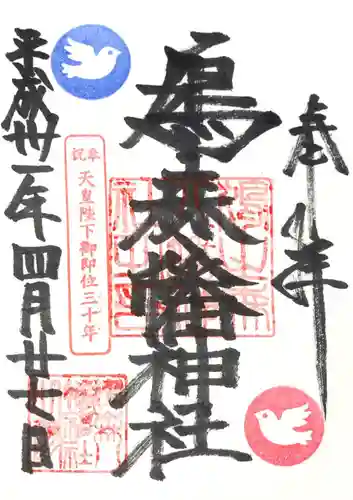 奉拝
鳩森八幡神社
奉祝
天皇陛下御即位三十年
平成卅一年四月廿七日